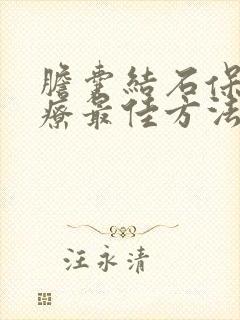 膽囊結石保
療最佳方法
汪永清